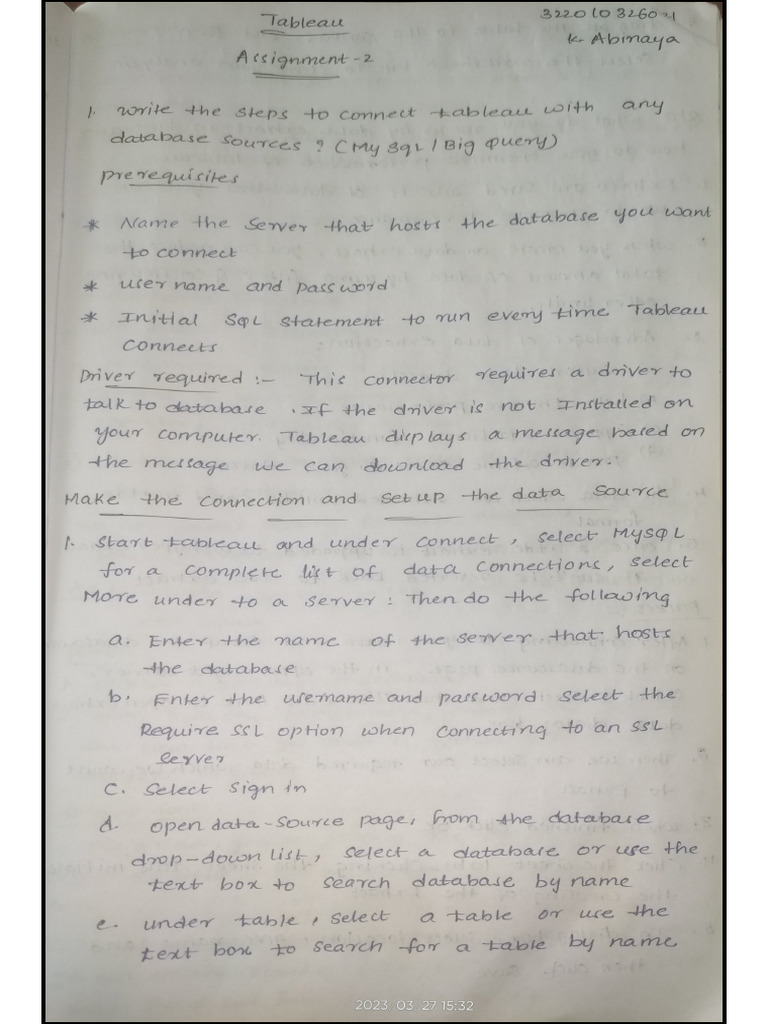 Tableau
322010326021
K. Abinaya
Assignment-2
1. Write the steps to connect tableau with any
database sources ? (My SqL / Big Query)
prerequisites
* Name the Server that hosts the database you want
to connect
* user name and password
* Initial SQL statement to run every time Tableau
connects
Driver required :- This connector requires a driver to
talk to database . If the driver is not Installed on
your computer. Tableau displays a message based on
the message we can download the driver.
Make the connection and set up the data source
1. Start tableau and under connect, select MySQL
for a complete list of data connections, select
More under to a server: Then do the following
a. Enter the name of the server that hosts
the database
b. Enter the username and password select the
Require SSL option when connecting to an SSL
Server
C. Select sign in
d. open data-source page, from the database
drop-down list, select a database or use the
text box to search database by name
e. under table, select a table or use the
text box to search for a table by name
2023. 03. 27 15:32